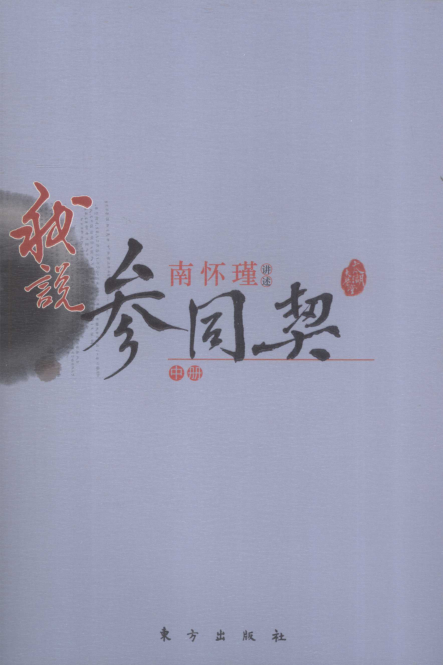 我説
参同契
南怀瑾 讲述
中册
東方出版社